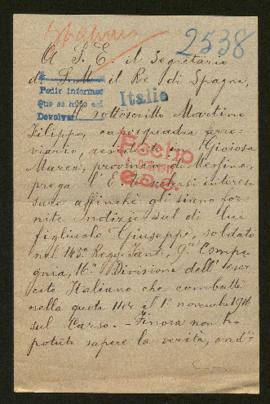 2538
A S. E. il Segretario
di S. M. il Re di Spagna,
Pedir informes
Que se
Devolver
Italie
Il sottoscritto Martino
Filippo, caposquadra ferro-
viario, residente in Gioiosa
Marea, provincia di Messina,
prega l'E. V. interes-
sarsi affinchè gli siano for-
nite notizie sul di lui
figliuolo Giuseppe, soldato
nel 145º Regg. Fant., 9ª Compa-
gnia, 16ª Divisione dell'eser-
cito Italiano che combattè
nella quota 208 il 1º novembre 1916
sul Carso. - Finora non ha
potuto sapere la verità, and'